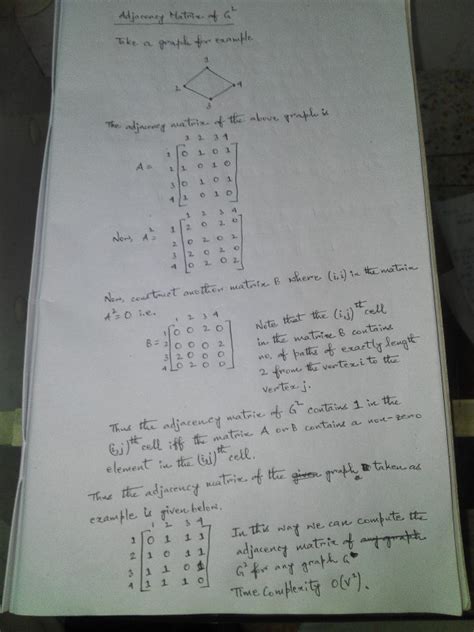 Adjacency Matrix of G²
Take a graph for example
1
2 4
3
The adjacency matrix of the above graph is
1 2 3 4
A = 1 [0 1 0 1]
2 [1 0 1 0]
3 [0 1 0 1]
4 [1 0 1 0]
1 2 3 4
Now, A² = 1 [2 0 2 0]
2 [0 2 0 2]
3 [2 0 2 0]
4 [0 2 0 2]
Now, construct another matrix B where (i,i) in the matrix
A² = 0 i.e.
1 2 3 4
B = 1 [0 0 2 0]
2 [0 0 0 2]
3 [2 0 0 0]
4 [0 2 0 0]
Note that the (i,j)th cell
in the matrix B contains
no. of paths of exactly length
2 from the vertex i to the
vertex j.
Thus the adjacency matrix of G² contains 1 in the
(i,j)th cell iff the matrix A or B contains a non-zero
element in the (i,j)th cell.
Thus the adjacency matrix of the given graph taken as
example is given below.
1 2 3 4
1 [0 1 1 1]
2 [1 0 1 1]
3 [1 1 0 1]
4 [1 1 1 0]
In this way we can compute the
adjacency matrix of any graph
G² for any graph G
Time Complexity O(V³).